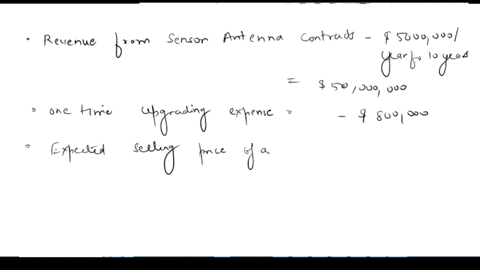 • Revenue from Sensor Antenna Contracts - $5000,000/
year for 10 years
= $50,000,000
• one time upgrading expense = - $800,000
• Expected selling price of a